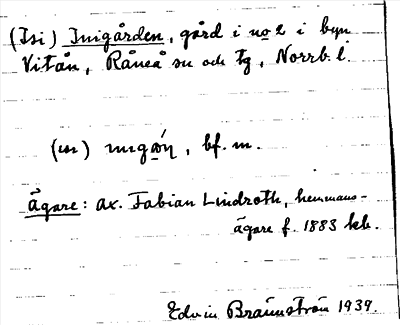 (Isi) Inigården, gård i no 2 i byn
Vitån, Råneå sn och tg, Norrb. l.
bf. m.
Ägare: Ax. Fabian Lindroth, hemmans-
ägare f. 1883 kb.
Edvin Brännström 1939.